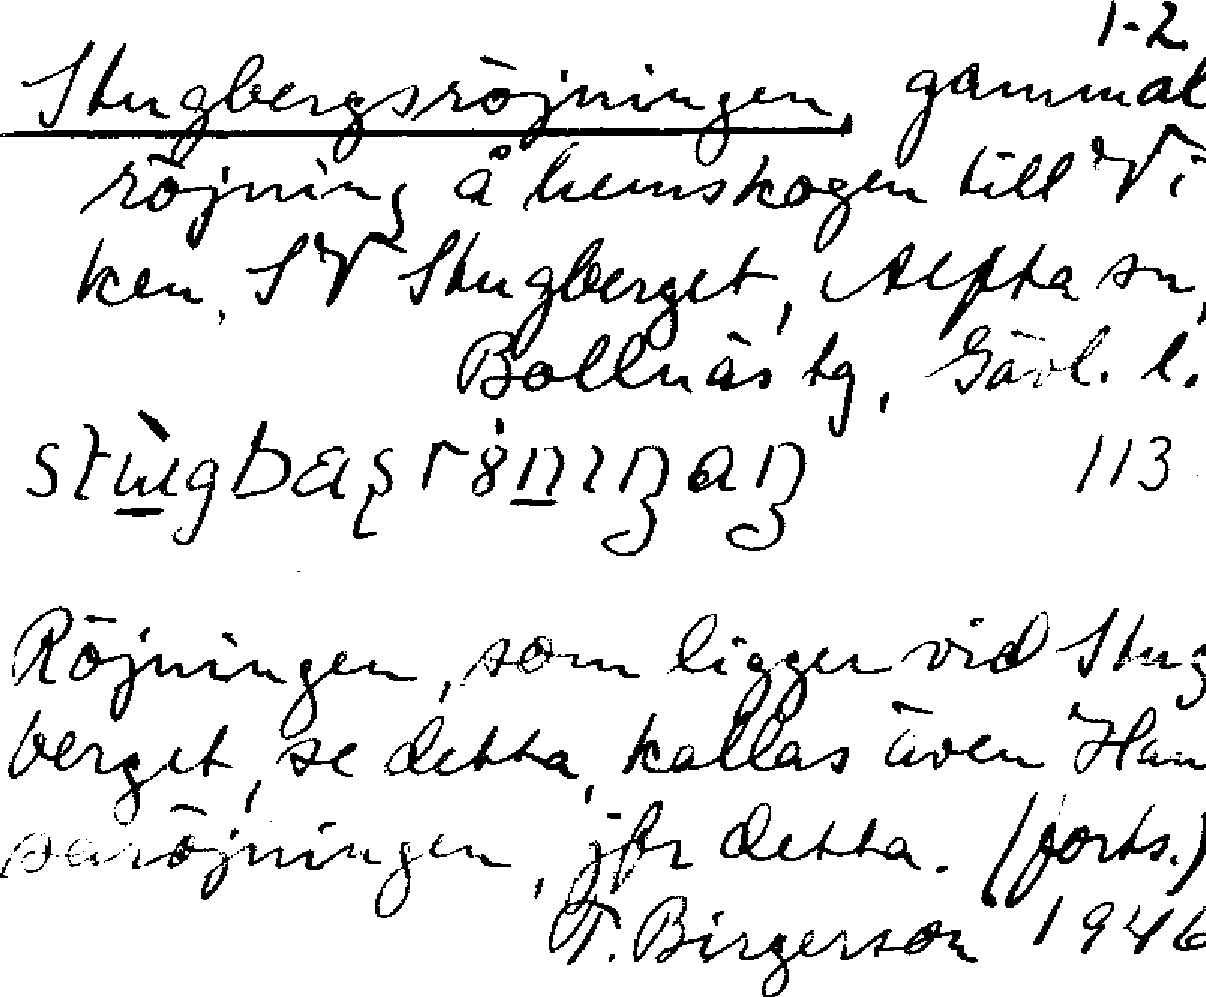 1-2
Stugbergsröjningen, gammal
röjning å hemskogen till Vi
ken, SV Stugberget, Alfta sn,
Bollnäs tg, Gävl. l.
113
Röjningen, som ligger vid Stug
berget, se detta, kallas även Han
saröjningen, jfr detta. (forts.)
T. Birgerson 1946